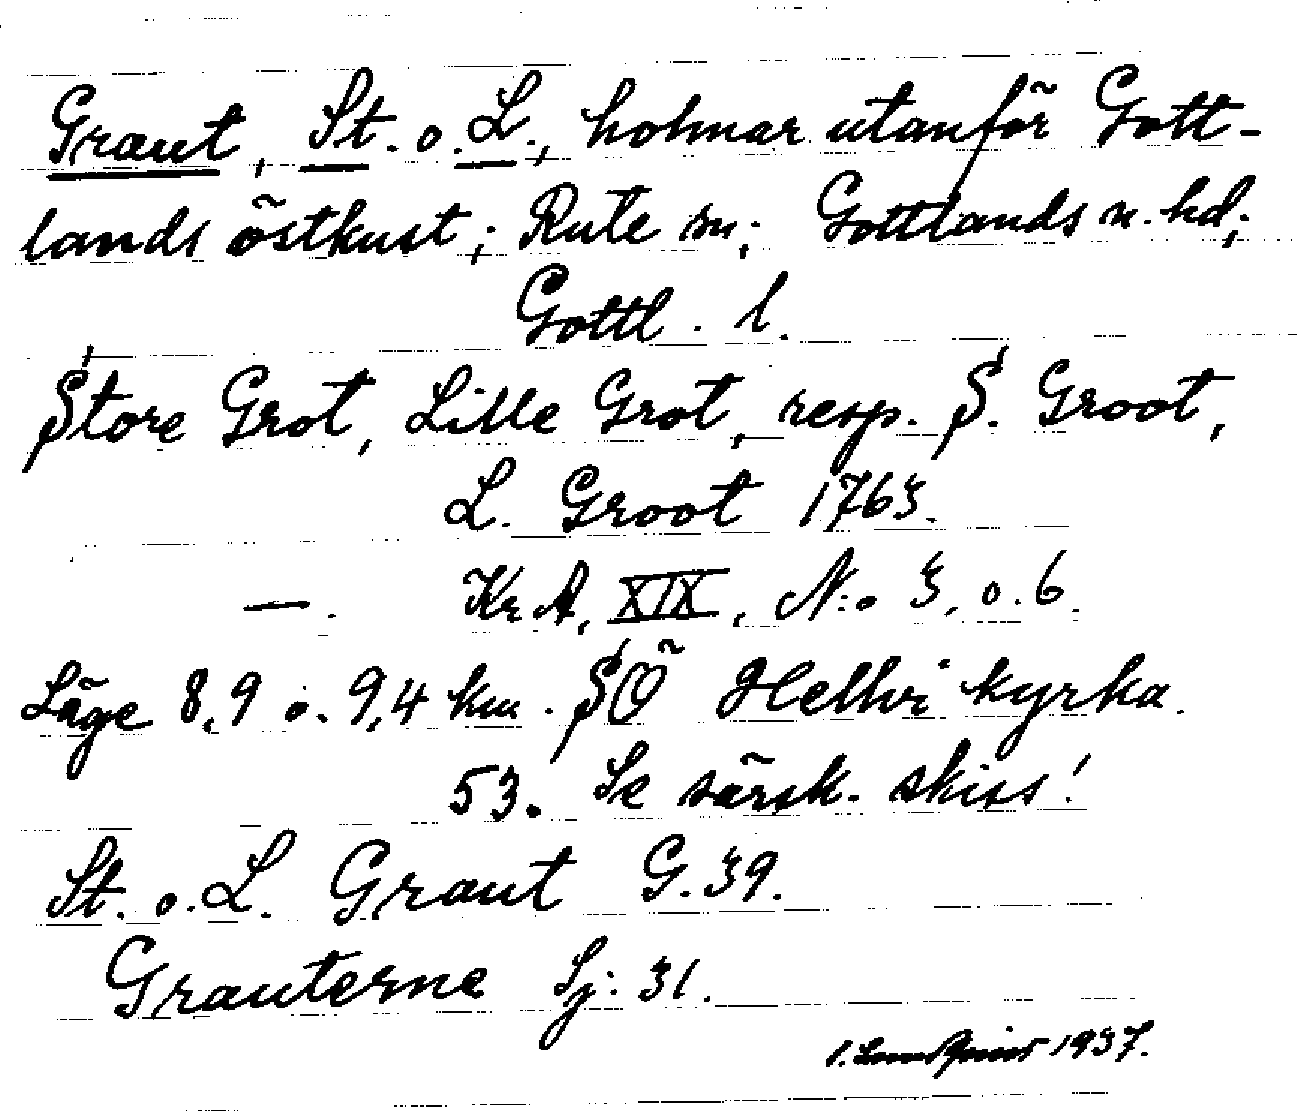 Graut, St. o. L., holmar utanför Gott-
lands östkust; Rute sn; Gottlands n. hd;
Gottl. l.
Store Grot, Lille Grot, resp. S. Groot,
L. Groot 1763.
—. Kr A, XIX, N:o 3, o. 6.
Läge 8,9 o. 9,4 km. SÖ Hellvi kyrka.
53. Se särsk. skiss!
St. o. L. Graut G. 39.
Grauterne Sj: 31.
1937.